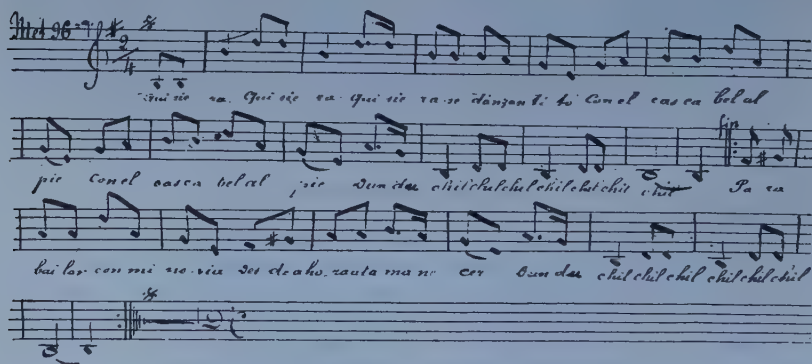 Met 96=
2
4
Qui sie ra. Qui sie ra. qui sie ra se danzan ti to Con el cas ca bel al
Fin
pie Con el casca bel al pie Dun du chil chil chil chil chil chil chil Pa ra
bai lar con mi no via Des de aho, rauta ma ne cer Dun du chil chil chil chil chil chil